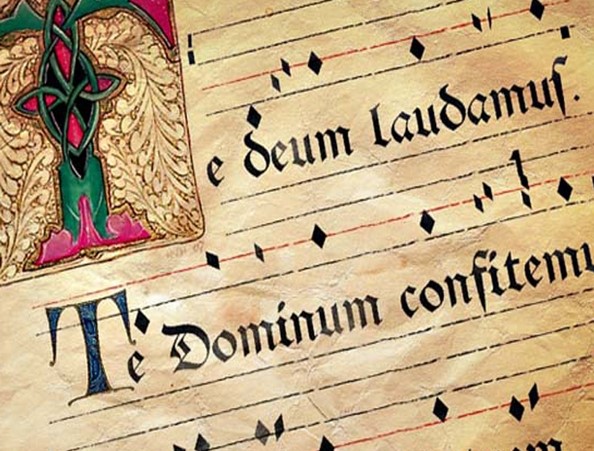 Te deum laudamus.
Te Dominum confitemu